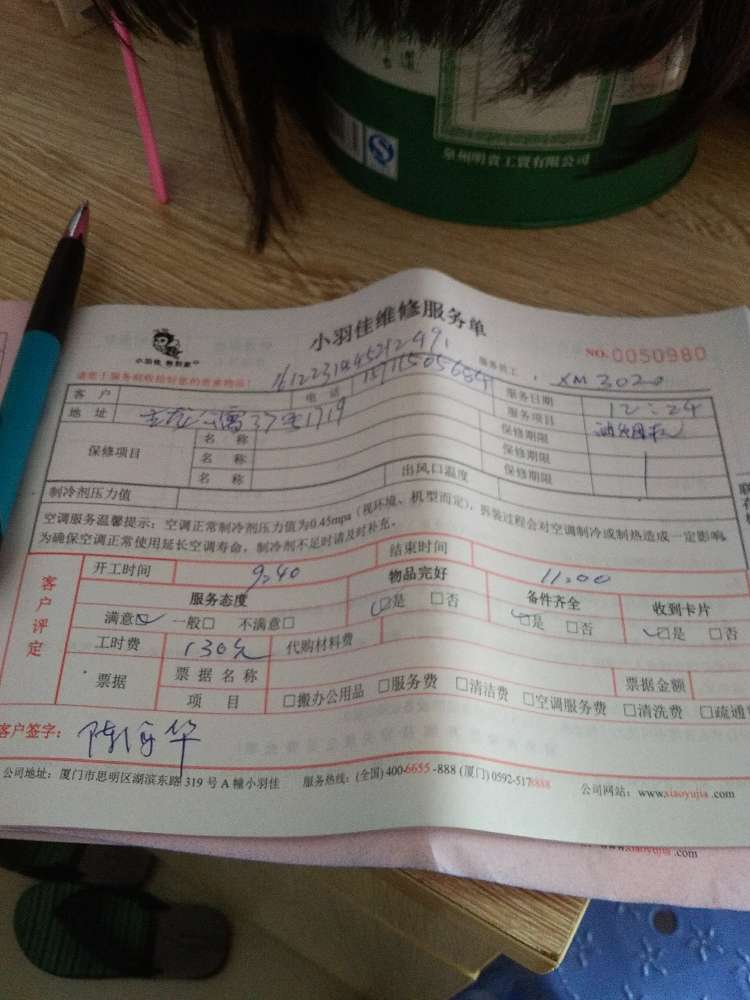 泉州明貴工貿有限公司
小羽佳维修服务单
小羽佳
NO.0050980
服务员工 XM3020
客户 电话 服务日期 12:24
地址 服务项目
保修项目 名称 保修期限
名称 保修期限
名称 保修期限
制冷剂压力值 出风口温度
空调服务温馨提示:空调正常制冷剂压力值为0.45mpa(视环境、机型而定),拆装过程会对空调制冷或制热造成一定影响,
为确保空调正常使用延长空调寿命,制冷剂不足时请及时补充。
客户评定
开工时间 9:40 结束时间 11:00
服务态度 物品完好 备件齐全 收到卡片
满意☑ 一般□ 不满意□ ☑是 □否 ☑是 □否 ☑是 □否
工时费 130元 代购材料费
票据 票据名称 票据金额
项目 □搬办公用品 □服务费 □清洁费 □空调服务费 □清洗费 □疏通
客户签字:
公司地址:厦门市思明区湖滨东路 319 号 A 幢小羽佳 服务热线:(全国) 400-6655-888 (厦门) 0592-5178888 公司网站:www.xiaoyujia.com
www.xiaoyujia.com